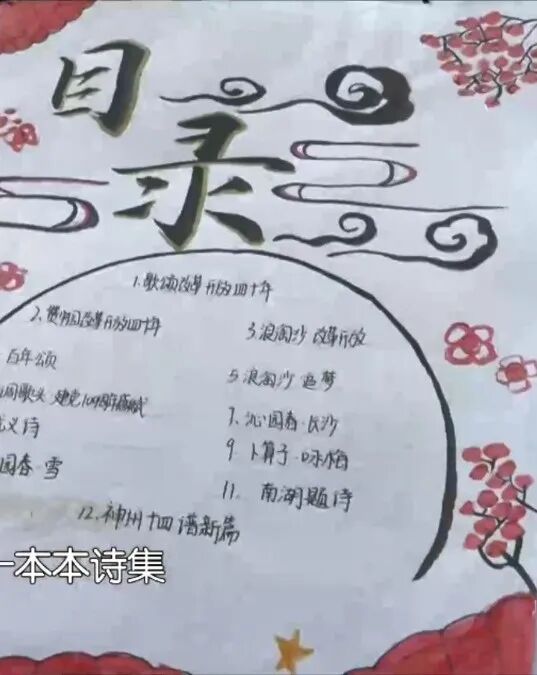 目录
1.歌颂改革开放四十年
2.贺祖国改革开放四十年
3.浪淘沙 改革开放
百年颂
5.浪淘沙 追梦
建党100周年
7.沁园春·长沙
义诗
9.卜算子·咏梅
园春·雪
11. 南湖题诗
12.神州十四谱新篇
一本本诗集